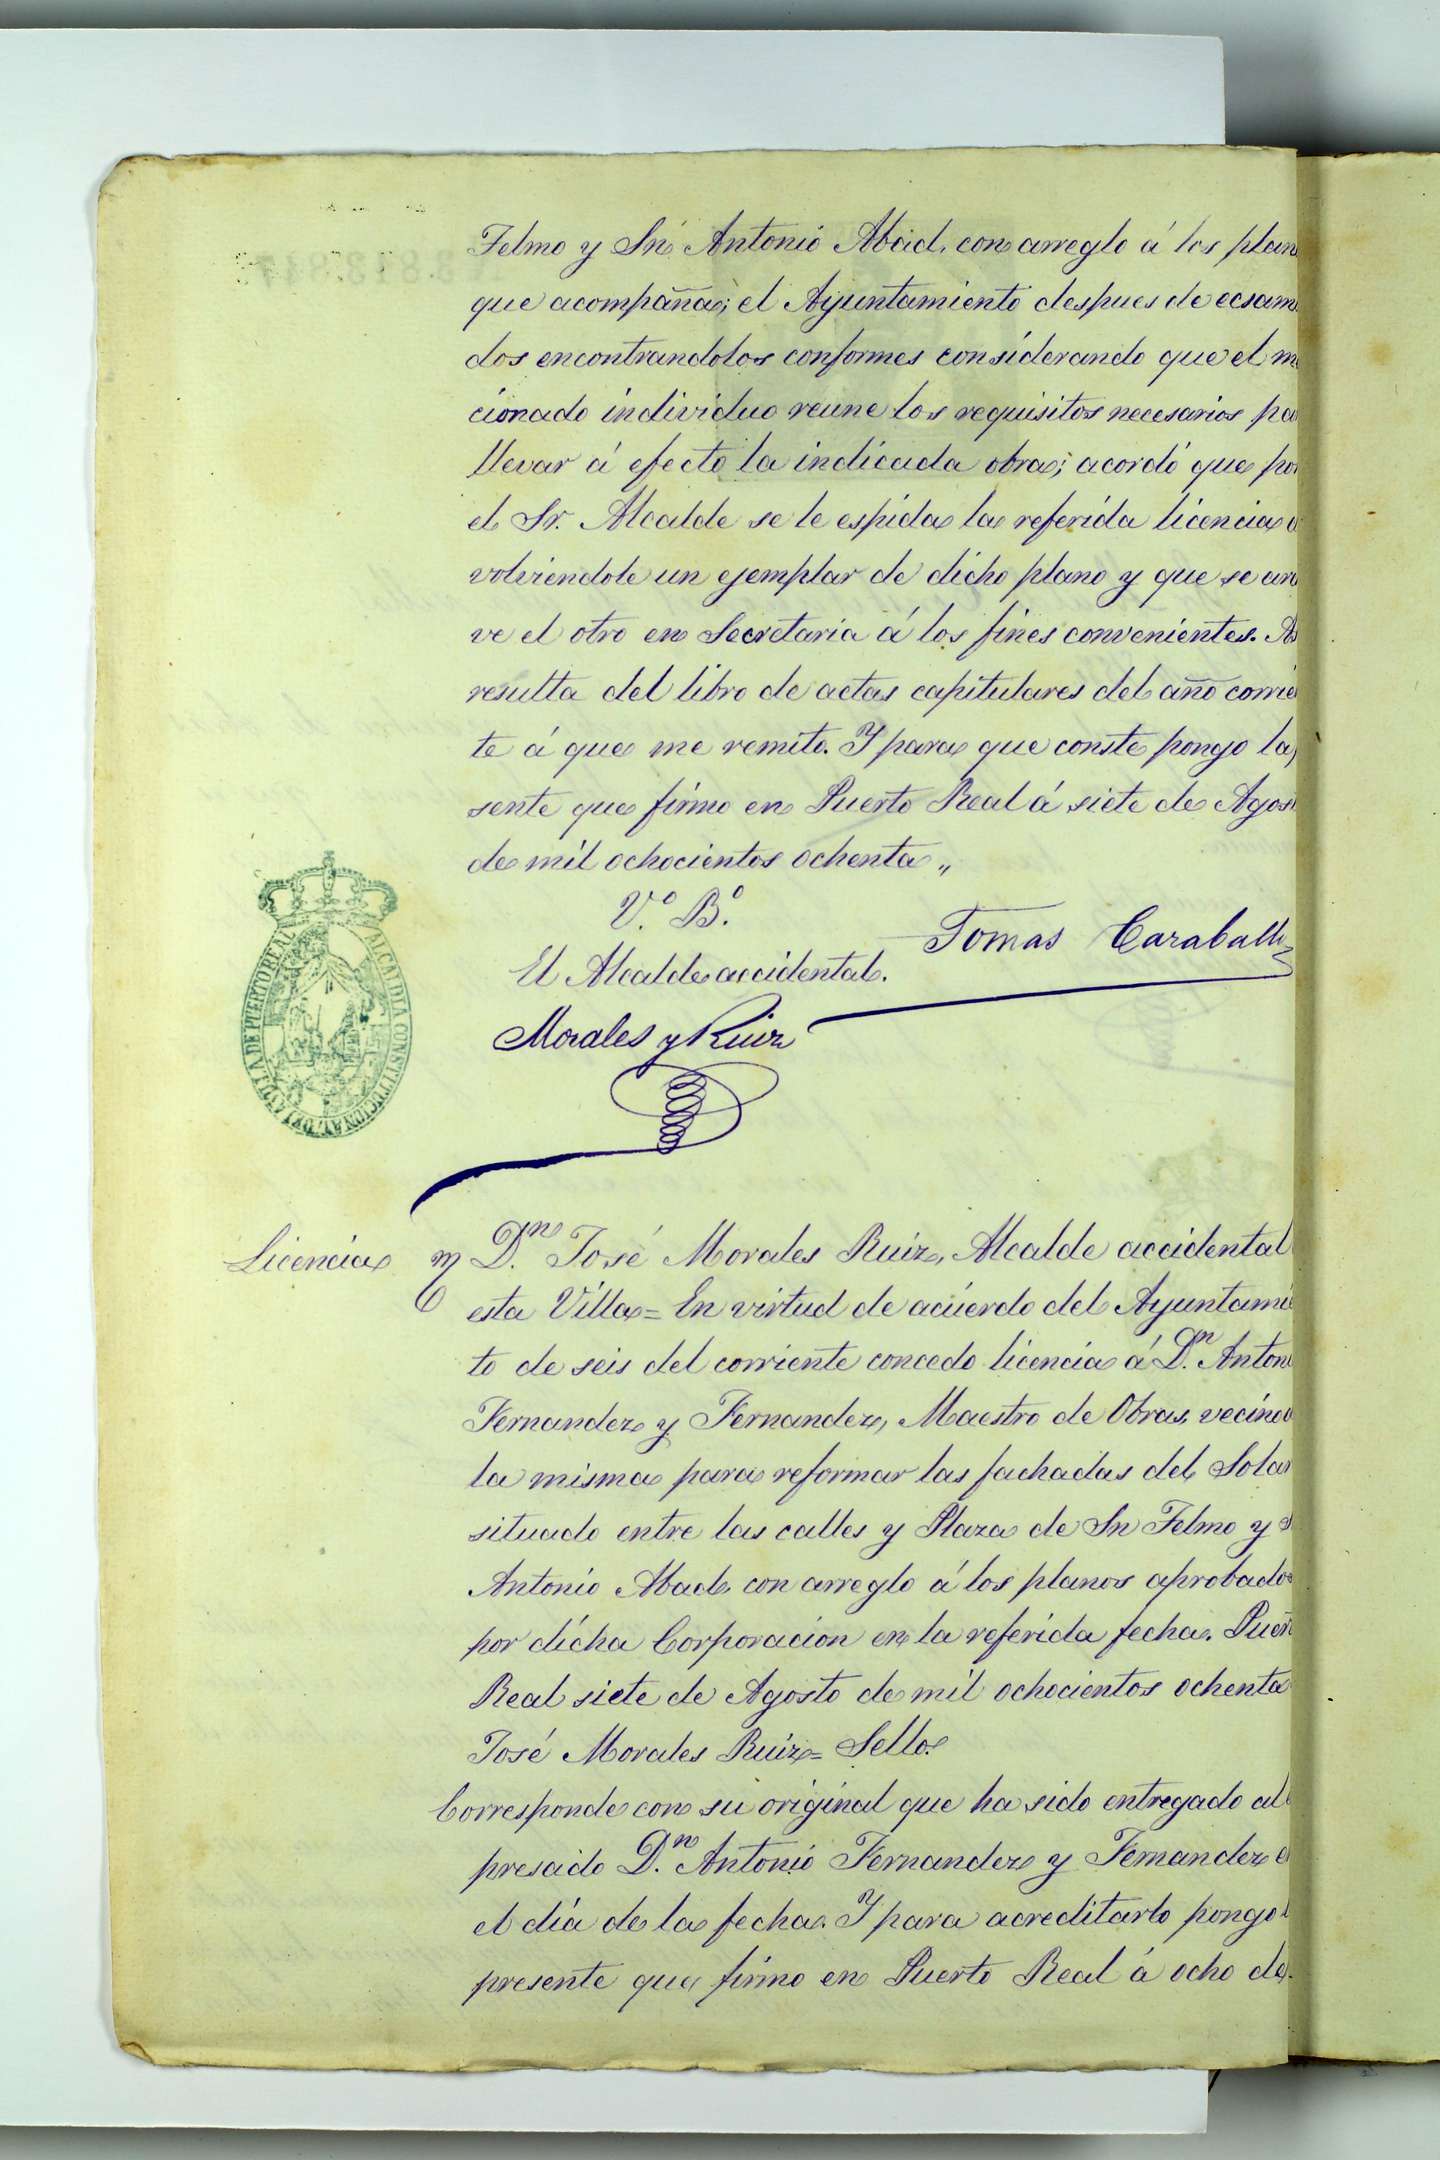 Telmo y Sn. Antonio Abad, con arreglo á los plan
que acompaña; el Ayuntamiento despues de ecsam
dos encontrandolos conformes considerando que el m
cionado individuo reune los requisitos necesarios pa
llevar á efecto la indicada obra; acordó que por
el Sr. Alcalde se le espida la referida licencia
volviendole un ejemplar de dicho plano y que se arc
ve el otro en Secretaria á los fines convenientes. As
resulta del libro de actas capitulares del año corrie
te á que me remito. Y para que conste pongo la
sente que firmo en Puerto Real á siete de Agos
de mil ochocientos ochenta „
V.º B.º
Tomas Caraballo
El Alcalde accidental.
Morales y Ruiz
ALCALDIA CONSTITUCIONAL DE LA VILLA DE PUERTO REAL
Licencia
D.n José Morales Ruiz, Alcalde accidental
esta Villa = En virtud de acuerdo del Ayuntami
to de seis del corriente concedo licencia á D.n Antoni
Fernandez y Fernandez, Maestro de Obras, vecino
la misma para reformar las fachadas del Solar
situado entre las calles y Plaza de Sn Telmo y S
Antonio Abad, con arreglo á los planos aprobados
por dicha Corporacion en la referida fecha. Puert
Real siete de Agosto de mil ochocientos ochenta
José Morales Ruiz = Sello.
Corresponde con su original que ha sido entregado al
presado D.n Antonio Fernandez y Fernandez e
el dia de la fecha. Y para acreditarlo pongo l
presente que firmo en Puerto Real á ocho de